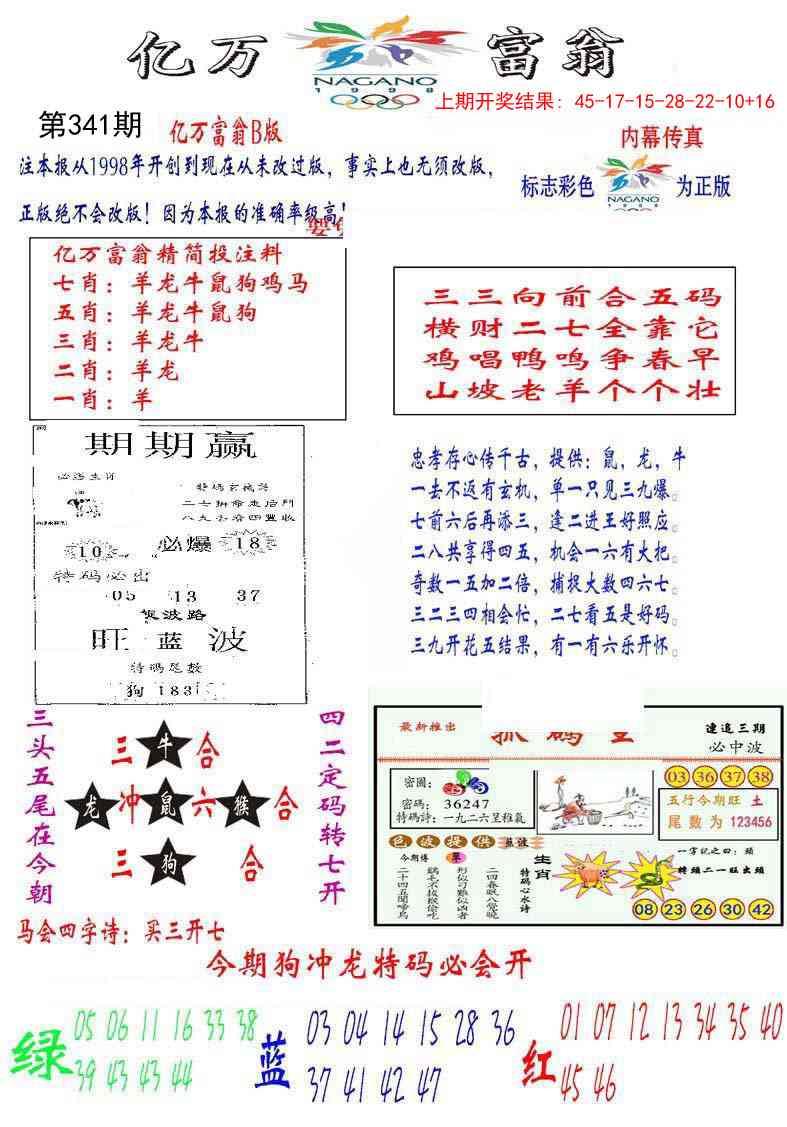 亿万富翁
NAGANO
1998
上期开奖结果：45-17-15-28-22-10+16
第341期
亿万富翁B版
内幕传真
注本报从1998年开创到现在从未改过版，事实上也无须改版，
标志彩色
NAGANO
1998
为正版
正版绝不会改版！因为本报的准确率级高！
亿万富翁精简投注料
七肖：羊龙牛鼠狗鸡马
五肖：羊龙牛鼠狗
三肖：羊龙牛
二肖：羊龙
一肖：羊
三三向前合五码
横财二七全靠它
鸡唱鸭鸣争春早
山坡老羊个个壮
期期赢
必选生肖
二七拚命走后門
八九
四豐收
10
必爆
18
特码必出
05 13 37
波路
旺蓝波
特碼足數
狗183
忠孝存心传千古，提供：鼠，龙，牛
一去不返有玄机，单一只见三九爆。
七前六后再添三，逢二进王好照应。
二八共享得四五，机会一六有大把。
奇数一五加二倍，捕捉大数四六七。
三二三四相会忙，二七看五是好码。
三九开花五结果，有一有六乐开怀。
三头五尾在今朝
三牛合
龙冲鼠六猴合
三狗合
四二定码转七开
最新推出
速追三期
必中波
密圖：
密碼：36247
特碼詩：一九二六呈稚氣
03 36 37 38
五行今期旺 土
尾數为 123456
色波提供 蓝波
今期博
單
二十四五聞啼鳥
形似刁難似凶者
二四春眠八覺曉
特码心水诗
生肖
一字記之曰：頭
特頭二一旺出頭
08 23 26 30 42
马会四字诗：买三开七
今期狗冲龙特码必会开
绿
05 06 11 16 33 38
39 43 43 44
蓝
03 04 14 15 28 36
37 41 42 47
红
01 07 12 13 34 35 40
45 46